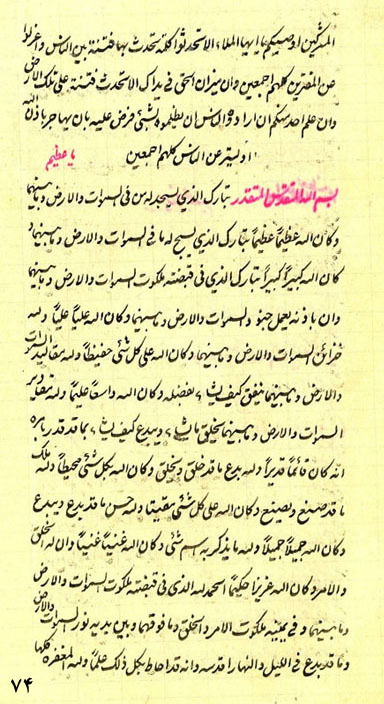 المشركين اوصيكم يا ايها الملاء الا تتحدثوا كلمة يتحدث بها فتنة بين الناس و
عن المفترين كلهم اجمعين وان ميزان الحق في يداك الا تتحدث فتنة على تلك الارض
وان علم احد منكم ان اراد الناس ان يظلموه بشئ فرض عليه بان يهاجر باذن الله
او يستر عن الناس كلهم اجمعين
يا عظيم
بسم الله المتقدس المتقدر تبارك الذي يسجد له من في السموات والارض وما بينهما
وكان الله عظيماً عظيماً تبارك الذي يسبح له ما في السموات والارض وما بينهما و
كان الله كبيراً كبيراً تبارك الذي في قبضته ملكوت السموات والارض وما بينهما
وان باذنه يعمل السموات والارض وما بينهما وكان الله علياً علياً وله
خزائن السموات والارض وما بينهما وكان الله على كل شئ حفيظاً وله مقاليد السموات
والارض وما بينهما ينفق كيف يشاء بفضله وكان الله واسعاً عليماً وله تقدير
السموات والارض وما بينهما يخلق ما يشاء ويبدع كيف يشاء بما قدر قدر بامره
انه كان قائماً قديراً وله بدع ما قد خلق ويخلق وكان الله بكل شئ محيطاً وله ملك
ما قد صنع ويصنع وكان الله على كل شئ مقيتا وله حسن ما قد بدع ويبدع
وكان الله جميلاً جميلاً وله ما يذكر به اسم شئ وكان الله غنياً غنياً وان له الخلق
والامر وكان الله عزيزا حكيماً الحمد لله الذي في قبضته ملكوت السموات والارض
وما بينهما وفي يمينه ملكوت الامر والخلق وما فوقهما وبين يديه نور السموات والارض
وما قد بدع في الليل والنهار اقدسه وانه قد احاط بكل ذلك علماً وله المغفرة كلها
٧۴